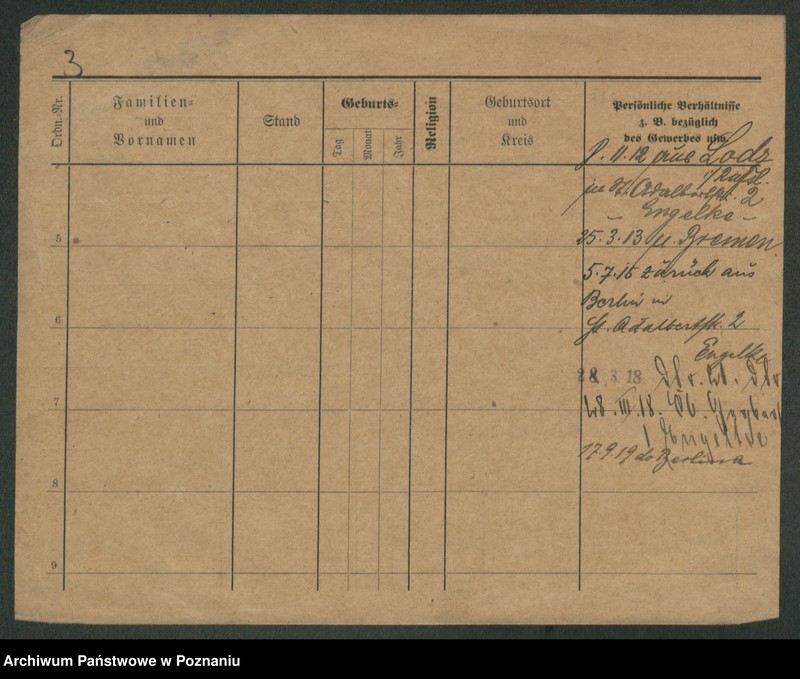 3
Ordn.-Nr.
Familien-
und
Vornamen
Stand
Geburts-
Tag
Monat
Jahr
Religion
Geburtsort
und
Kreis
Persönliche Verhältnisse
z. B. bezüglich
des Gewerbes usw.
11.12 aus Lodz
2
- Engelke -
25.3.13 n. Bremen
5.7.15 zurück aus
Berlin in
St. Adalbertstr. 2
Engelke
28.3.18
28.III.18.
17.9.19 do Berlina
5
6
7
8
9
Archiwum Państwowe w Poznaniu